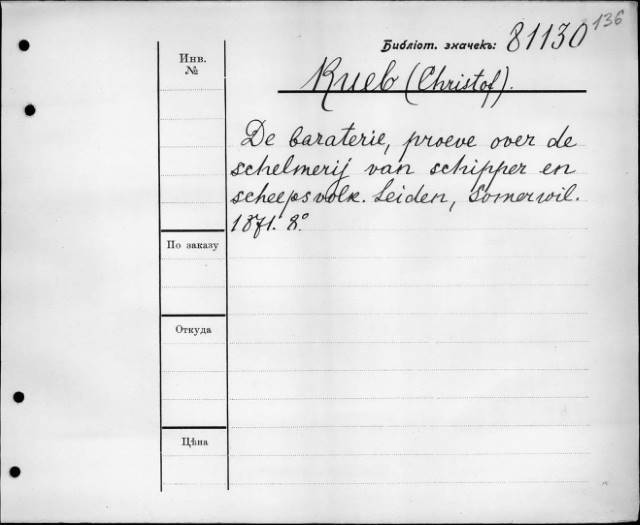 136
Библіот. значекъ: 81130
Инв.
№
Rueb (Christof).
De baraterie, proeve over de
schelmerij van schipper en
scheepsvolk. Leiden, Somerwil.
1871. 8°.
По заказу
Откуда
Цѣна